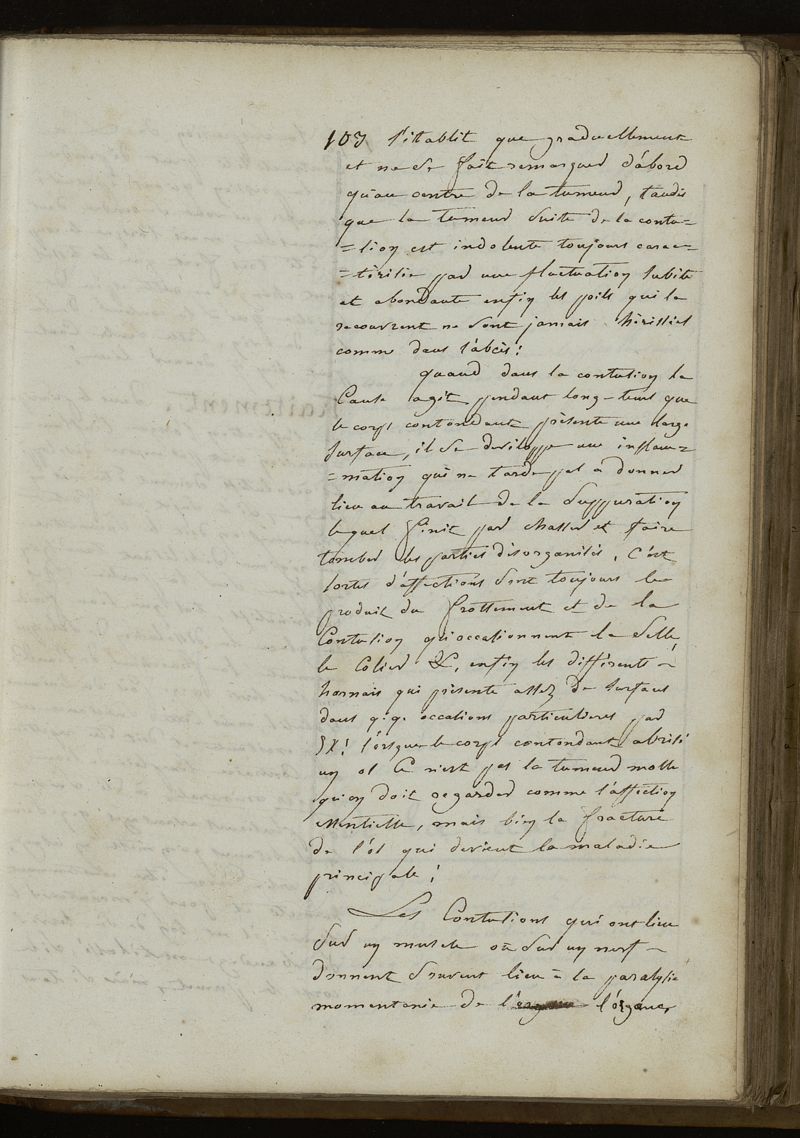 103 s'établit que graduellement
et ne se fait remarquer d'abord
qu'au centre de la tumeur, tandis
que la tumeur suite de la contu=
=sion est indolente toujours carac=
=térisée par une fluctuation subite
et abondante enfin les poils qui la
recouvrent ne sont jamais hérissés
comme dans l'abcès!
quand dans la contusion la
Cause agit pendant long-tems que
le corps contondant présente une large
surface, il se développe une inflam=
=mation qui ne tarde pas à donner
lieu au travail de la suppuration
lequel finit par chasser et faire
tomber les parties disorganisés. C'est
sortes d'affections sont toujours le
produit du frottement et de la
Contusion qu'occasionnent la selle,
le Colier &, enfin les différents
harnais qui présente assez de surface
dans q.q. occasions particulières par
EX! lorsque le corps contondant a brisé
un os Ce n'est pas la tumeur molle
qu'on doit regarder comme l'affection
essentielle, mais bien la fracture
de l'os qui devient la maladie
principale!
Les Contusions qui ont lieu
sur un muscle où sur un nerf
donnent souvent lieu à la paralysie
momentanée de l'organe